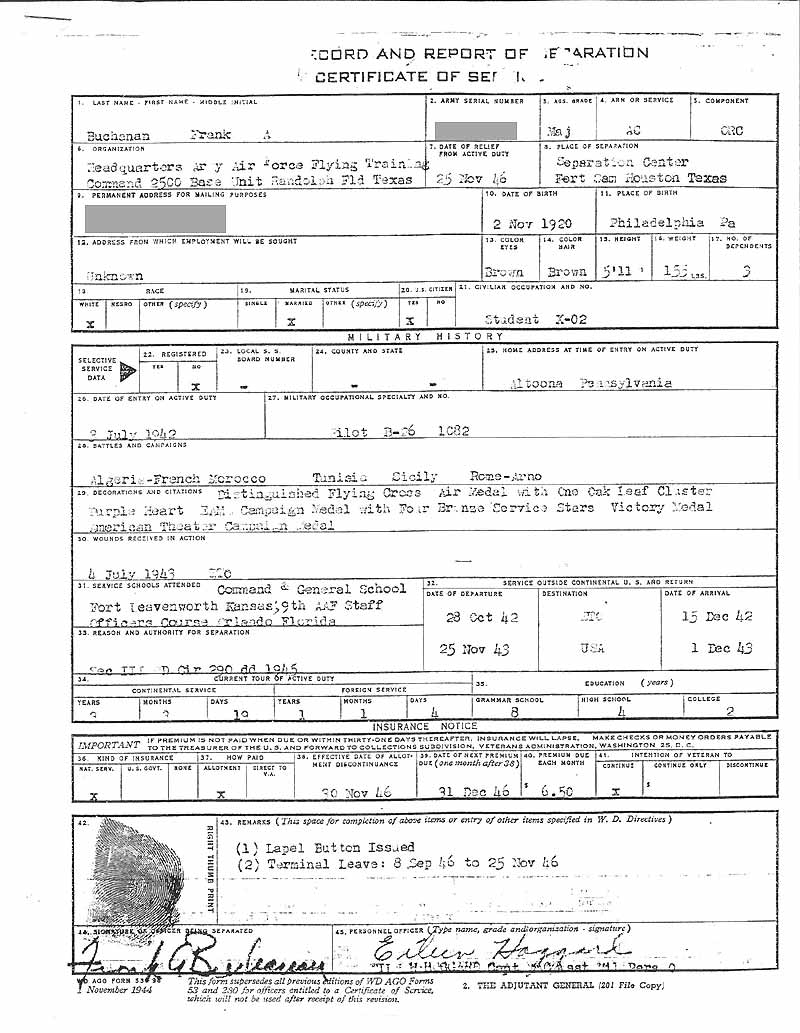 CORD AND REPORT OF
CERTIFICATE OF
1. LAST NAME - FIRST NAME - MIDDLE INITIAL
2. ARMY SERIAL NUMBER
3. AUS. GRADE
4. ARM OR SERVICE
5. COMPONENT
Buchanan Frank A
Maj AC ORC
6. ORGANIZATION
7. DATE OF RELIEF FROM ACTIVE DUTY
8. PLACE OF SEPARATION
Headquarters Ar y Air Force Flying Training
Command 2500 Base Unit Randolph Fld Texas
25 Nov 46
Separation Center
Fort Sam Houston Texas
9. PERMANENT ADDRESS FOR MAILING PURPOSES
10. DATE OF BIRTH
11. PLACE OF BIRTH
2 Nov 1920
Philadelphia Pa
12. ADDRESS FROM WHICH EMPLOYMENT WILL BE SOUGHT
13. COLOR EYES
14. COLOR HAIR
15. HEIGHT
16. WEIGHT
17. NO. OF DEPENDENTS
Unknown
Brown Brown 5'11 LBS. 3
18. RACE
19. MARITAL STATUS
20. U.S. CITIZEN
21. CIVILIAN OCCUPATION AND NO.
WHITE NEGRO OTHER (specify) SINGLE MARRIED OTHER (specify) YES NO
X X X
Student X-02
MILITARY HISTORY
SELECTIVE SERVICE DATA
22. REGISTERED
YES NO
X
23. LOCAL S. S. BOARD NUMBER
24. COUNTY AND STATE
25. HOME ADDRESS AT TIME OF ENTRY ON ACTIVE DUTY
- - -
Altoona Pennsylvania
26. DATE OF ENTRY ON ACTIVE DUTY
27. MILITARY OCCUPATIONAL SPECIALTY AND NO.
July 1942
Pilot B-26 1082
28. BATTLES AND CAMPAIGNS
Algeria-French Morocco Tunisia Sicily Rome-Arno
29. DECORATIONS AND CITATIONS Distinguished Flying Cross Air Medal with One Oak Leaf Cluster
Purple Heart EAME Campaign Medal with Four Bronze Service Stars Victory Medal
American Theater Campaign Medal
30. WOUNDS RECEIVED IN ACTION
4 July 1943
31. SERVICE SCHOOLS ATTENDED Command & General School
Fort Leavenworth Kansas; 9th AAF Staff
Officers Course Orlando Florida
32. SERVICE OUTSIDE CONTINENTAL U. S. AND RETURN
DATE OF DEPARTURE DESTINATION DATE OF ARRIVAL
28 Oct 42 15 Dec 42
25 Nov 43 USA 1 Dec 43
33. REASON AND AUTHORITY FOR SEPARATION
Sec III WD Cir 290 dd 1945
34. CURRENT TOUR OF ACTIVE DUTY
35. EDUCATION (years)
CONTINENTAL SERVICE FOREIGN SERVICE
YEARS MONTHS DAYS YEARS MONTHS DAYS GRAMMAR SCHOOL HIGH SCHOOL COLLEGE
19 1 1 4 8 4 2
INSURANCE NOTICE
IMPORTANT IF PREMIUM IS NOT PAID WHEN DUE OR WITHIN THIRTY-ONE DAYS THEREAFTER, INSURANCE WILL LAPSE. MAKE CHECKS OR MONEY ORDERS PAYABLE
TO THE TREASURER OF THE U. S. AND FORWARD TO COLLECTIONS SUBDIVISION, VETERANS ADMINISTRATION, WASHINGTON 25, D. C.
36. KIND OF INSURANCE
37. HOW PAID
38. EFFECTIVE DATE OF ALLOTMENT DISCONTINUANCE
39. DATE OF NEXT PREMIUM DUE (one month after 38)
40. PREMIUM DUE EACH MONTH
41. INTENTION OF VETERAN TO
NAT. SERV. U.S. GOVT. NONE ALLOTMENT DIRECT TO V.A.
CONTINUE CONTINUE ONLY DISCONTINUE
X X 30 Nov 46 31 Dec 46 $ 6.50 X $
42.
RIGHT THUMB PRINT
43. REMARKS (This space for completion of above items or entry of other items specified in W. D. Directives)
(1) Lapel Button Issued
(2) Terminal Leave: 8 Sep 46 to 25 Nov 46
44. SIGNATURE OF OFFICER BEING SEPARATED
45. PERSONNEL OFFICER (Type name, grade and organization - signature)
Frank A Buchanan
Eileen Haggard
WD AGO FORM 53-98
1 November 1944
This form supersedes all previous editions of WD AGO Forms
53 and 280 for officers entitled to a Certificate of Service,
which will not be used after receipt of this revision.
2. THE ADJUTANT GENERAL (201 File Copy)